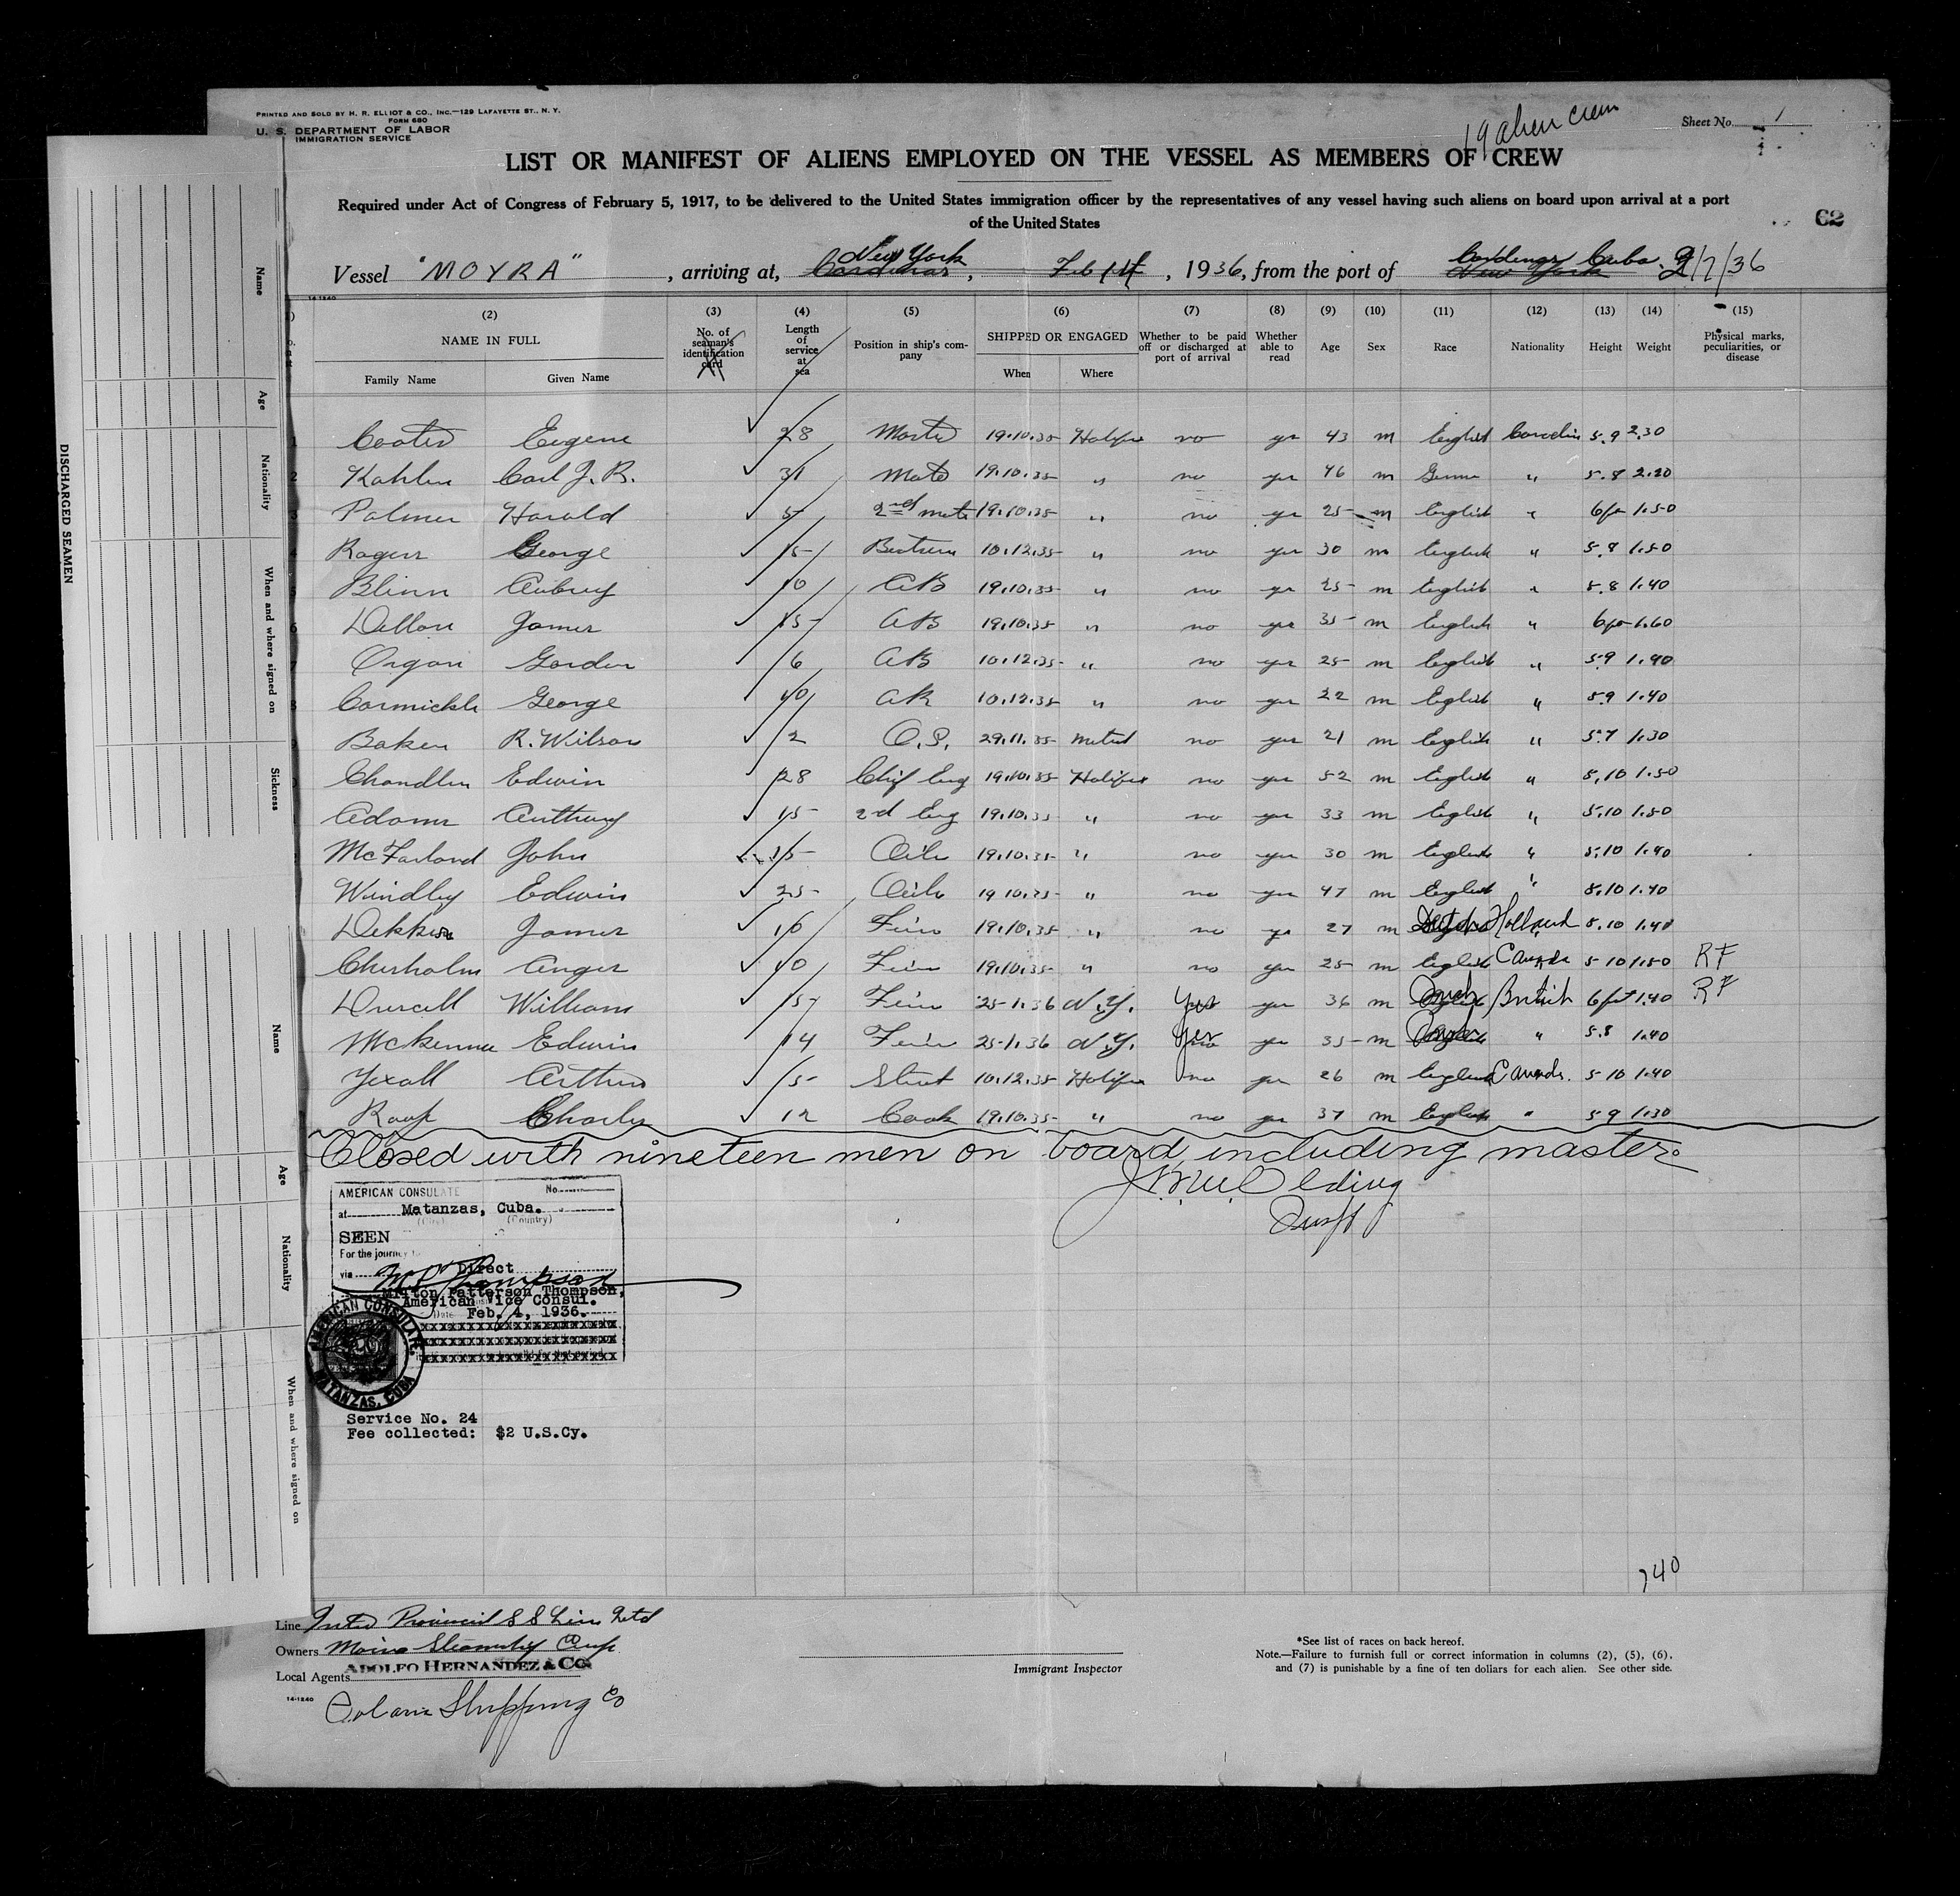 PRINTED AND SOLD BY H. R. ELLIOT & CO., INC.—129 LAFAYETTE ST., N. Y.
FORM 680
U. S. DEPARTMENT OF LABOR
IMMIGRATION SERVICE
19 alien crew
Sheet No. 1
LIST OR MANIFEST OF ALIENS EMPLOYED ON THE VESSEL AS MEMBERS OF CREW
Required under Act of Congress of February 5, 1917, to be delivered to the United States immigration officer by the representatives of any vessel having such aliens on board upon arrival at a port
of the United States
62
Vessel "MOYRA", arriving at, New York Cardenas, Feb 1st, 1936, from the port of Cardenas Cuba. New York 2/7/36
14-1240
(2) (3) (4) (5) (6) (7) (8) (9) (10) (11) (12) (13) (14) (15)
NAME IN FULL
Family Name Given Name
No. of seaman's identification card
Length of service at sea
Position in ship's company
SHIPPED OR ENGAGED
When Where
Whether to be paid off or discharged at port of arrival
Whether able to read
Age Sex Race Nationality Height Weight
Physical marks, peculiarities, or disease
1 Eugene 28 Master 19.10.35 Halifax no yes 43 m English 5.9 2.30
2 Carl J. R. 31 Mate 19.10.35 " no yes 46 m " 5.8 2.20
3 Palmer Harold 5 2nd mate 19.10.35 " no yes 25 m English " 1.50
4 Rogers George 15 10.12.35 " no yes 30 m English " 5.8 1.50
5 Blinn Aubrey 10 AB 19.10.35 " no yes 25 m English " 5.8 1.40
6 Dillon James 15 AB 19.10.35 " no yes 35 m English " 1.60
7 Organ Gordon 6 AB 10.12.35 " no yes 25 m English " 5.9 1.40
8 George 10 AB 10.12.35 " no yes 22 m English " 5.9 1.40
9 Baker R. Wilson 2 O.S. 29.11.35 no yes 21 m English " 5.7 1.30
Chandler Edwin 28 Chief Eng 19.10.35 Halifax no yes 52 m English " 5.10 1.50
Adams Anthony 15 2d Eng 19.10.35 " no yes 33 m English " 5.10 1.50
McFarland John 15 Oiler 19.10.35 " no yes 30 m English " 5.10 1.40
Edwin 25 Oiler 19.10.35 " no yes 47 m English " 5.10 1.40
Dekker James 10 19.10.35 " no yes 27 m Dutch Holland 5.10 1.40
Chisholm Angus 10 19.10.35 " no yes 25 m English Canada 5 10 1.50 RF
William 15 25-1.36 N.Y. yes yes 36 m British 1.40 RF
Edwin 14 25-1.36 N.Y. yes yes 35 m " 5.8 1.40
Arthur 5 10.12.35 Halifax no yes 26 m English Canada. 5 10 1.40
Roop Charles 12 Cook 19.10.35 " no yes 37 m English " 5 9 1.30
Closed with nineteen men on board including master.
AMERICAN CONSULATE No.
at Matanzas, Cuba.
(City) (Country)
SEEN
For the journey to
via Direct
M P Thompson
Milton Patterson Thompson,
American Vice Consul.
Date Feb. 4, 1936.
XXXXXXXXXXXXXXXXXXXXXXX
XXXXXXXXXXXXXXXXXXXXXXX
XXXXXXXXXXXXXXXXXXXXXXX
AMERICAN CONSULATE. MATANZAS, CUBA
Service No. 24
Fee collected: $2 U.S.Cy.
740
Line Inter Provincial S S Line Ltd
Owners Steamship Corp.
Local Agents ADOLFO HERNANDEZ & CO.
14-1240
Shipping Co
Immigrant Inspector
*See list of races on back hereof.
Note.—Failure to furnish full or correct information in columns (2), (5), (6),
and (7) is punishable by a fine of ten dollars for each alien. See other side.
DISCHARGED SEAMEN
Name
Age
Nationality
When and where signed on
Sickness
Name
Age
Nationality
When and where signed on